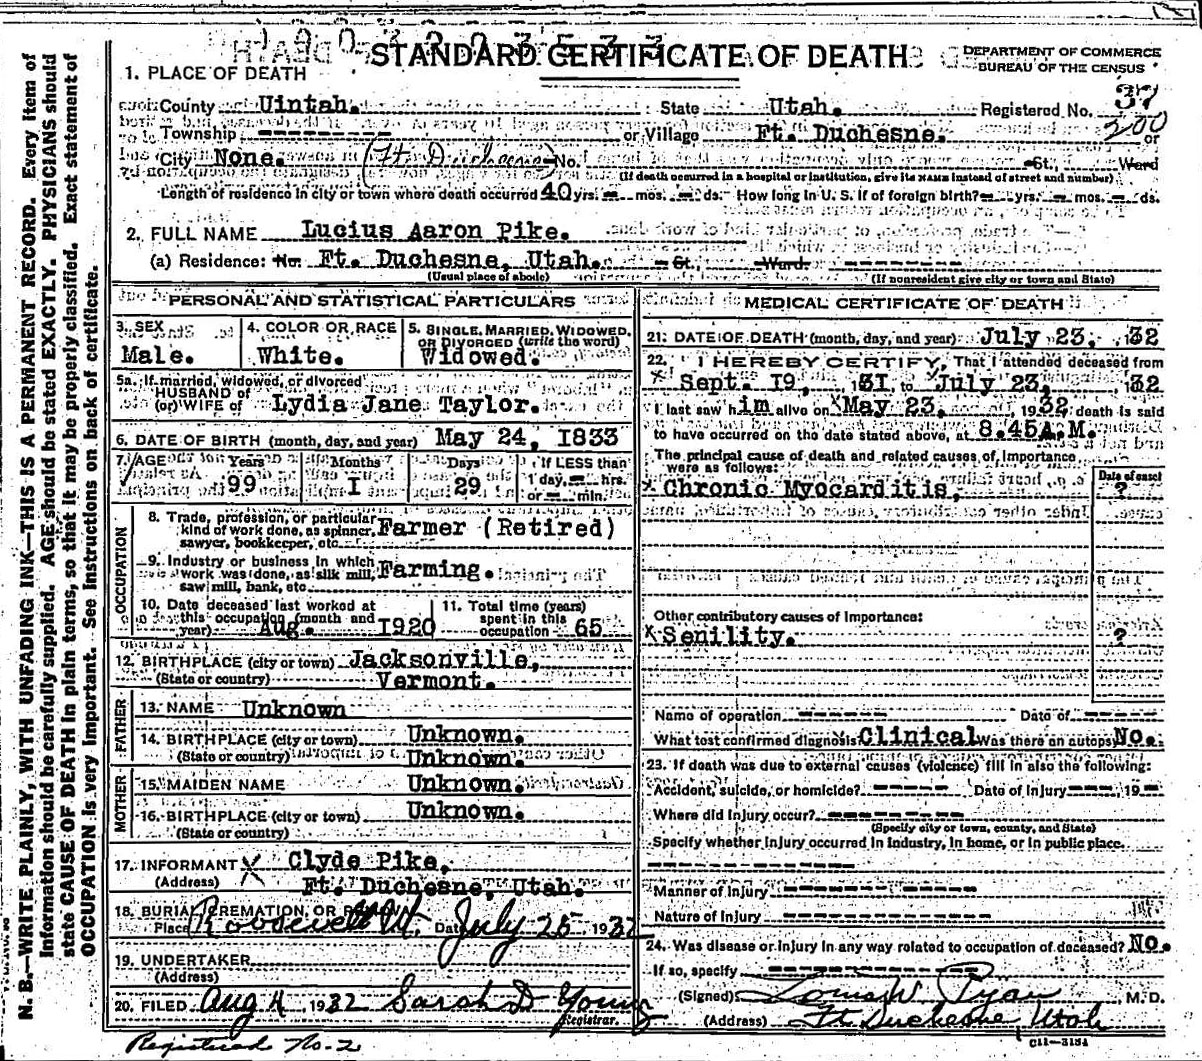 STANDARD CERTIFICATE OF DEATH
DEPARTMENT OF COMMERCE
BUREAU OF THE CENSUS
1. PLACE OF DEATH
County Uintah. State Utah. Registered No. 37
Township ------- or Village Ft. Duchesne. 200 or
City None. (Ft. Duchesne) No. St., Ward
(If death occurred in a hospital or institution, give its NAME instead of street and number)
Length of residence in city or town where death occurred 40 yrs. - mos. - ds. How long in U. S. if of foreign birth? - yrs. - mos. - ds.
2. FULL NAME Lucius Aaron Pike.
(a) Residence: No. Ft. Duchesne, Utah. St., Ward. -------
(Usual place of abode) (If nonresident give city or town and State)
PERSONAL AND STATISTICAL PARTICULARS
3. SEX
Male.
4. COLOR OR RACE
White.
5. SINGLE, MARRIED, WIDOWED, OR DIVORCED (write the word)
Widowed.
5a. If married, widowed, or divorced
HUSBAND of
(or) WIFE of Lydia Jane Taylor.
6. DATE OF BIRTH (month, day, and year) May 24, I833
7. AGE Years Months Days If LESS than
99 I 29 1 day, - hrs.
or - min.
OCCUPATION
8. Trade, profession, or particular
kind of work done, as spinner, Farmer (Retired)
sawyer, bookkeeper, etc.
9. Industry or business in which
work was done, as silk mill, Farming.
saw mill, bank, etc.
10. Date deceased last worked at
this occupation (month and
year) Aug. I920
11. Total time (years)
spent in this
occupation 65
12. BIRTHPLACE (city or town) Jacksonville,
(State or country) Vermont.
FATHER
13. NAME Unknown
14. BIRTHPLACE (city or town) Unknown.
(State or country) Unknown.
MOTHER
15. MAIDEN NAME Unknown.
16. BIRTHPLACE (city or town) Unknown.
(State or country)
17. INFORMANT X Clyde Pike,
(Address) Ft. Duchesne, Utah.
18. BURIAL, CREMATION, OR
Place Roosevelt Ut. Date July 25 1932
19. UNDERTAKER
(Address)
20. FILED Aug 4, 1932 Sarah D Young
Registrar.
Registered No-2
MEDICAL CERTIFICATE OF DEATH
21. DATE OF DEATH (month, day, and year) July 23, 32
22. I HEREBY CERTIFY, That I attended deceased from
x Sept. I9, 31 to x July 23, 32
I last saw him alive on x May 23, 1932, death is said
to have occurred on the date stated above, at 8.45A.M.
The principal cause of death and related causes of importance
were as follows: Date of onset
x Chronic Myocarditis, ?
Other contributory causes of importance:
x Senility. ?
Name of operation ------ Date of -----
What test confirmed diagnosis Clinical Was there an autopsy No.
23. If death was due to external causes (violence) fill in also the following:
Accident, suicide, or homicide? ----- Date of injury ---, 19 -
Where did injury occur? -------
(Specify city or town, county, and State)
Specify whether injury occurred in industry, in home, or in public place.
Manner of injury
Nature of injury
24. Was disease or injury in any way related to occupation of deceased? No.
If so, specify
(Signed) W. M. D.
(Address) Ft Duchesne Utah
C11—3184
N. B.—WRITE PLAINLY, WITH UNFADING INK—THIS IS A PERMANENT RECORD. Every item of
information should be carefully supplied. AGE should be stated EXACTLY. PHYSICIANS should
state CAUSE OF DEATH in plain terms, so that it may be properly classified. Exact statement of
OCCUPATION is very important. See instructions on back of certificate.